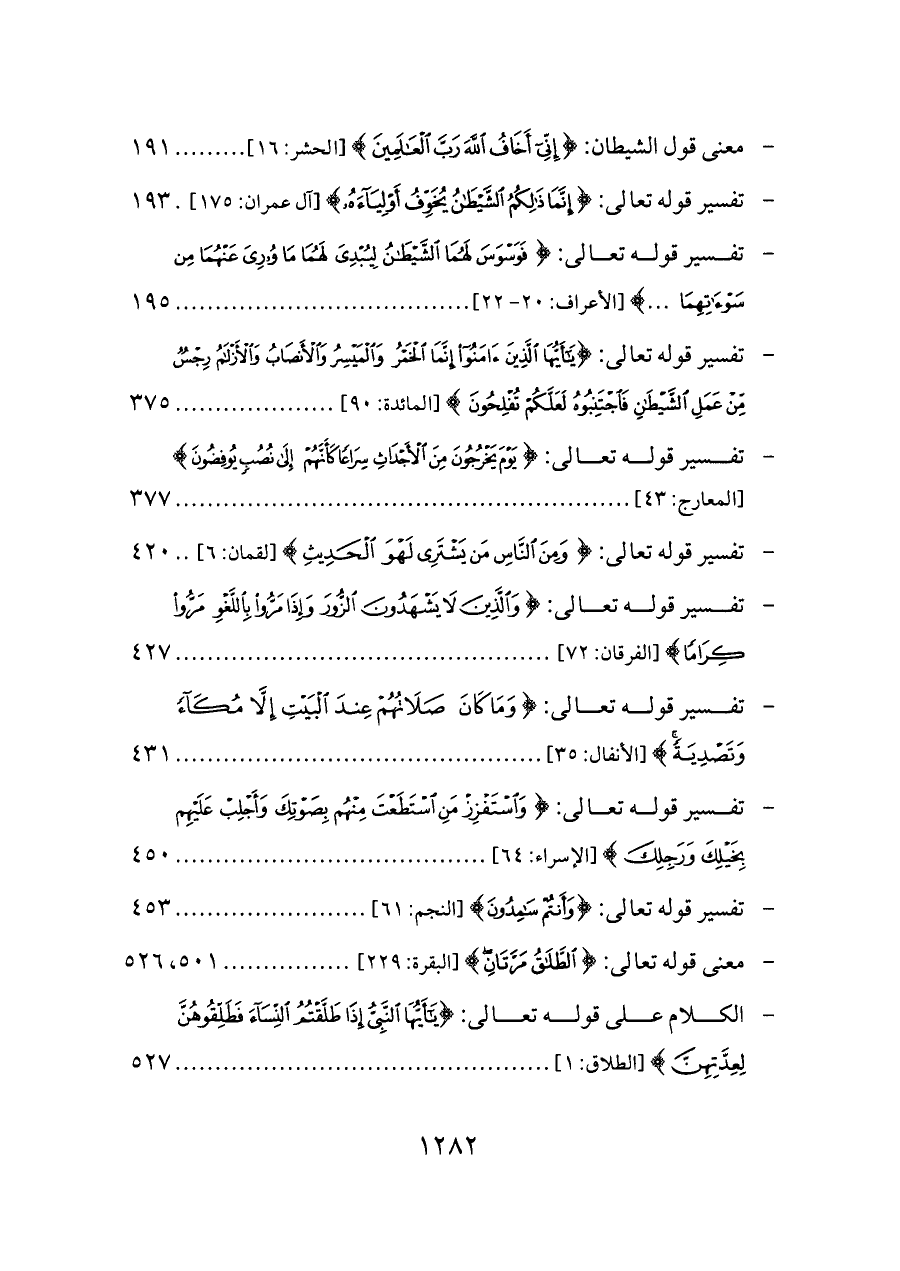 - معنى قول الشيطان: ﴿ إِنِّيٓ أَخَافُ ٱللَّهَ رَبَّ ٱلْعَٰلَمِينَ ﴾ [الحشر: ١٦] ......... ١٩١
- تفسير قوله تعالى: ﴿ إِنَّمَا ذَٰلِكُمُ ٱلشَّيْطَٰنُ يُخَوِّفُ أَوْلِيَآءَهُۥ ﴾ [آل عمران: ١٧٥] . ١٩٣
- تفسير قوله تعالى: ﴿ فَوَسْوَسَ لَهُمَا ٱلشَّيْطَٰنُ لِيُبْدِيَ لَهُمَا مَا وُۥرِيَ عَنْهُمَا مِن
سَوْءَٰتِهِمَا ... ﴾ [الأعراف: ٢٠-٢٢] ..................................... ١٩٥
- تفسير قوله تعالى: ﴿ يَٰٓأَيُّهَا ٱلَّذِينَ ءَامَنُوٓا۟ إِنَّمَا ٱلْخَمْرُ وَٱلْمَيْسِرُ وَٱلْأَنصَابُ وَٱلْأَزْلَٰمُ رِجْسٌ
مِّنْ عَمَلِ ٱلشَّيْطَٰنِ فَٱجْتَنِبُوهُ لَعَلَّكُمْ تُفْلِحُونَ ﴾ [المائدة: ٩٠] .................... ٣٧٥
- تفسير قوله تعالى: ﴿ يَوْمَ يَخْرُجُونَ مِنَ ٱلْأَجْدَاثِ سِرَاعًا كَأَنَّهُمْ إِلَىٰ نُصُبٍ يُوفِضُونَ ﴾
[المعارج: ٤٣] ......................................................... ٣٧٧
- تفسير قوله تعالى: ﴿ وَمِنَ ٱلنَّاسِ مَن يَشْتَرِي لَهْوَ ٱلْحَدِيثِ ﴾ [لقمان: ٦] .. ٤٢٠
- تفسير قوله تعالى: ﴿ وَٱلَّذِينَ لَا يَشْهَدُونَ ٱلزُّورَ وَإِذَا مَرُّوا۟ بِٱللَّغْوِ مَرُّوا۟
كِرَامًا ﴾ [الفرقان: ٧٢] ............................................... ٤٢٧
- تفسير قوله تعالى: ﴿ وَمَا كَانَ صَلَاتُهُمْ عِندَ ٱلْبَيْتِ إِلَّا مُكَآءً
وَتَصْدِيَةً ﴾ [الأنفال: ٣٥] .............................................. ٤٣١
- تفسير قوله تعالى: ﴿ وَٱسْتَفْزِزْ مَنِ ٱسْتَطَعْتَ مِنْهُم بِصَوْتِكَ وَأَجْلِبْ عَلَيْهِم
بِخَيْلِكَ وَرَجِلِكَ ﴾ [الإسراء: ٦٤] ....................................... ٤٥٠
- تفسير قوله تعالى: ﴿ وَأَنتُمْ سَٰمِدُونَ ﴾ [النجم: ٦١] ........................ ٤٥٣
- معنى قوله تعالى: ﴿ ٱلطَّلَٰقُ مَرَّتَانِ ﴾ [البقرة: ٢٢٩] ................ ٥٠١، ٥٢٦
- الكلام على قوله تعالى: ﴿ يَٰٓأَيُّهَا ٱلنَّبِيُّ إِذَا طَلَّقْتُمُ ٱلنِّسَآءَ فَطَلِّقُوهُنَّ
لِعِدَّتِهِنَّ ﴾ [الطلاق: ١] ............................................... ٥٢٧
١٢٨٢